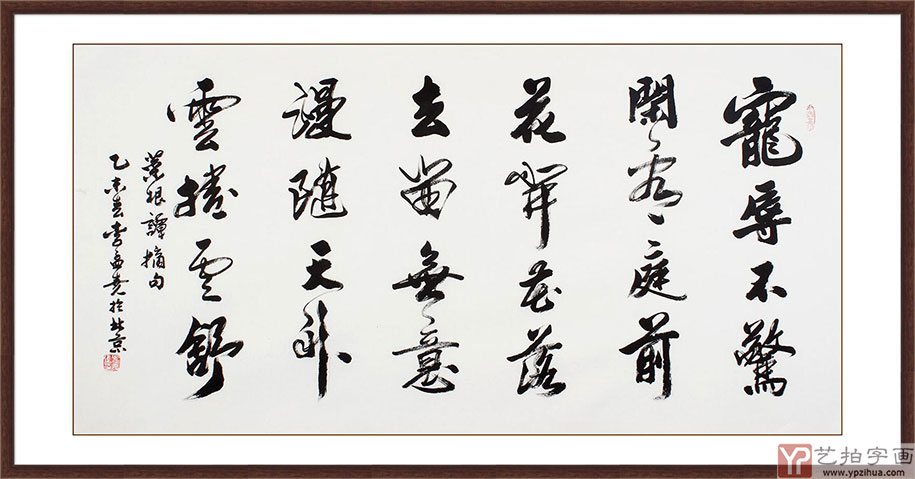 寵辱不驚
閑看庭前
花開花落
去留無意
漫隨天外
雲捲雲舒
菜根譚摘句
乙未春李孟尧於北京
YP 艺拍字画
www.ypzihua.com